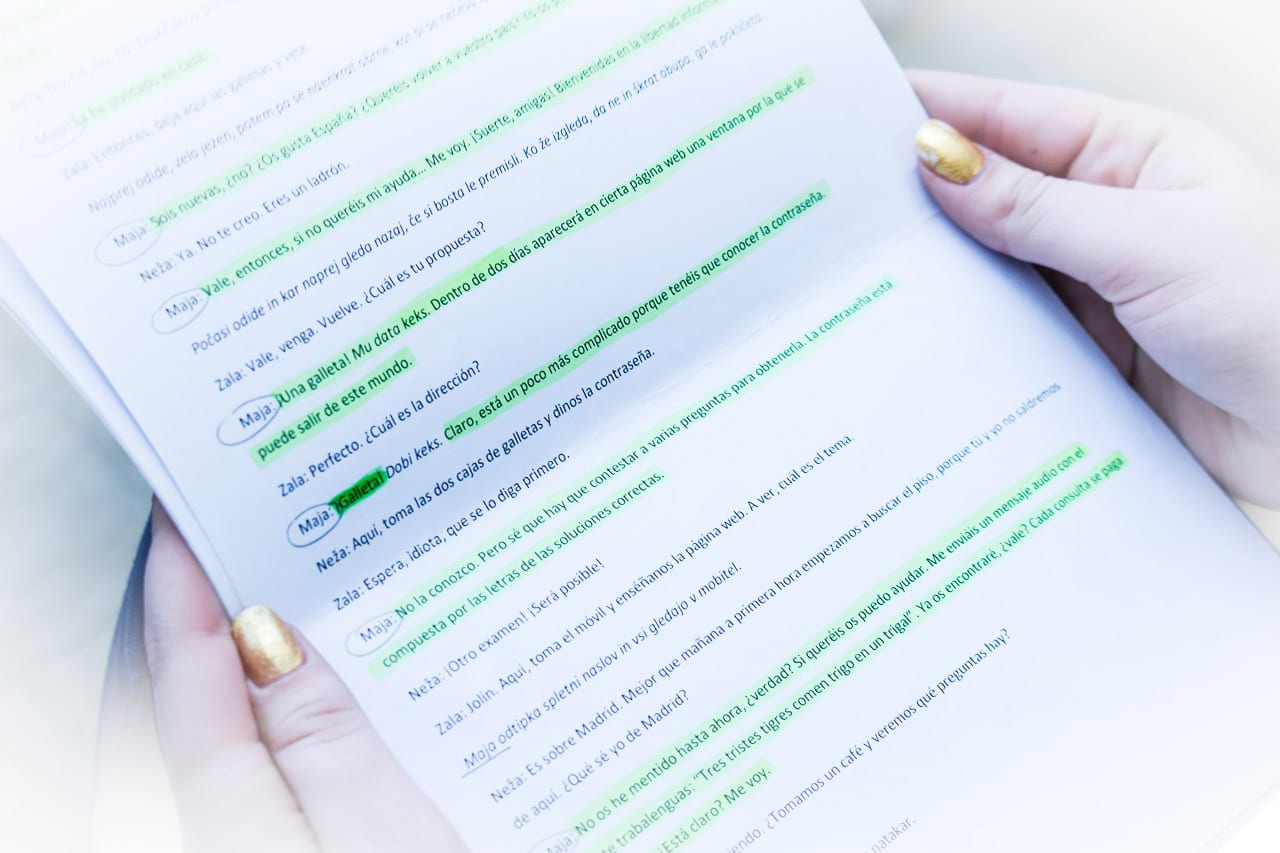 Neža: No, no, no, no.
Maja: La he olvidado en casa.
Zala: Entonces, deja aquí las galletas y vete.
Najprej odide, zelo jezen, potem pa se naenkrat obrne, kot bi se nečesa
Maja: Sois nuevas, ¿no? ¿Os gusta España? ¿Queréis volver a vuestro país? Yo os
Neža: Ya. No te creo. Eres un ladrón.
Maja: Vale, entonces, si no queréis mi ayuda... Me voy. ¡Suerte, amigas! Bienvenidas en la libertad
Počasi odide in kar naprej gleda nazaj, če si bosta le premislili. Ko že izgleda, da ne in škrat obupa, ga le pokličeta.
Zala: Vale, venga. Vuelve. ¿Cuál es tu propuesta?
Maja: ¡Una galleta! Mu data keks. Dentro de dos días aparecerá en cierta página web una ventana por la que se
puede salir de este mundo.
Zala: Perfecto. ¿Cuál es la dirección?
Maja: ¡Galleta! Dobi keks. Claro, está un poco más complicado porque tenéis que conocer la contraseña.
Neža: Aquí, toma las dos cajas de galletas y dinos la contraseña.
Zala: Espera, idiota, que se lo diga primero.
Maja: No la conozco. Pero sé que hay que contestar a varias preguntas para obtenerla. La contraseña está
compuesta por las letras de las soluciones correctas.
Neža: ¡Otro examen! ¡Será posible!
Zala: Jolín. Aquí, toma el móvil y enséñanos la página web. A ver, cuál es el tema.
Maja odtipka spletni naslov in vsi gledajo v mobitel.
Neža: Es sobre Madrid. Mejor que mañana a primera hora empezamos a buscar el piso, porque tú y yo no saldremos
de aquí. ¿Qué sé yo de Madrid?
Maja: No os he mentido hasta ahora, ¿verdad? Si queréis os puedo ayudar. Me enviáis un mensaje audio con el
te trabalenguas: "Tres tristes tigres comen trigo en un trigal". Ya os encontraré, ¿vale? Cada consulta se paga
¿Está claro? Me voy.
endo. ¿Tomamos un café y veremos qué preguntas hay?
natakar.